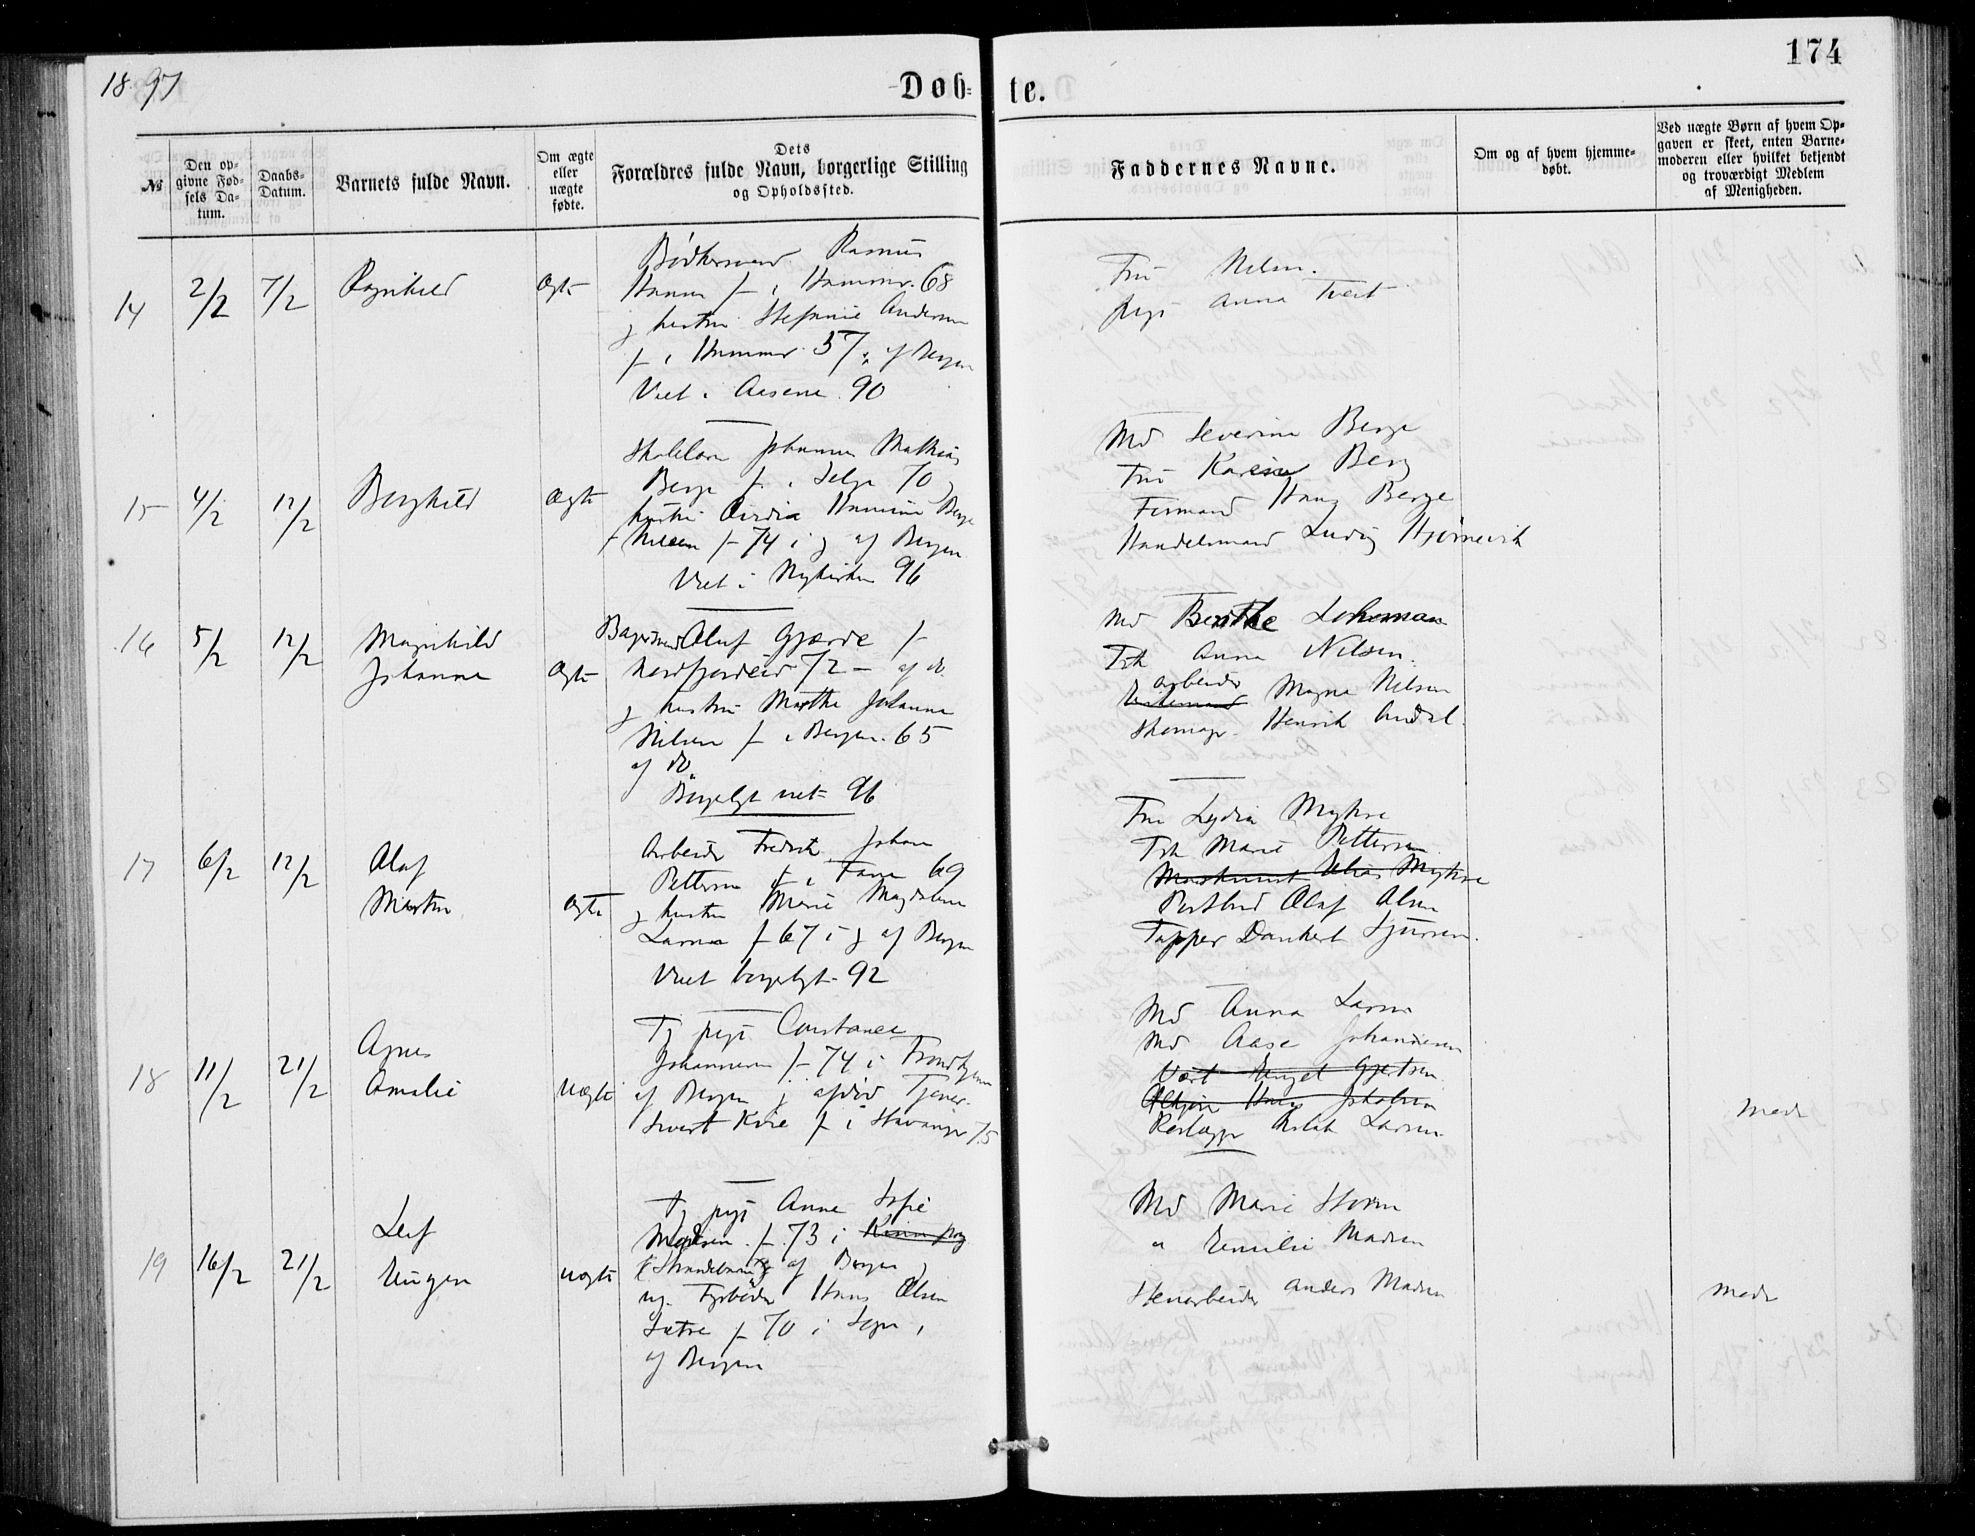 1897
Døb- te.
174
№
Den op-
givne Fød-
sels Da-
tum.
Daabs-
Datum.
Barnets fulde Navn.
Om ægte
eller
uægte
fødte.
Dets
Forældres fulde Navn, borgerlige Stilling
og Opholdssted.
Faddernes Navne.
Om og af hvem hjemme-
døbt.
Ved uægte Børn af hvem Op-
gaven er skeet, enten Barne-
moderen eller hvilket bekjendt
og troværdigt Medlem
af Menigheden.
14
2/2
7/2
Ragnhild
Ægte
Bødkersvend Rasmus
f i Hammer 68
g hustru Stefanie Andersen
f i Hammer 57, af Bergen
Viet i Aasene 90
Fru Nelsen.
Pige Anna Tveit
15
4/2
12/2
Borghild
Ægte
Skolelærer Johannes Mathias
Berge f. i Selje 70 g
hustru Hansine Berge
f Nilsen f 74 i g af Bergen
Viet i Nykirken 96
Md Severine Berge
Fru Karine Berg
Formand Hans Berge
Handelsmand Ludvig Hjørnevik
16
5/2
12/2
Magnhild
Johanna
Ægte
Bagersvend Oluf Gjærde f
Nordfjordeid 72 - af do.
g hustru Marthe Johanna
Nilsen f i Bergen 65
af do
Borgerligt viet 96
Md Benthe Lohman
Frk Anna Nilsen.
arbeider
Magna Nilsen
Skomager Henrik Andal.
17
6/2
12/2
Olaf
Martin
Ægte
Arbeider Fredrik Johan
Pettersen f i Fane 69
g hustru Marie Magdalene
Larsen f 67 i g af Bergen
Viet borgerligt 92
Fru Lydia Myhre
Frk Marie Pettersen
Maskinist Elias Myhre
Postbud Olaf Olsen
Tapper Dankert Sjursen.
18
11/2
21/2
Agnes
Amalie
Uægte
Tj pige Constance
Johannesen f 74 i Trondhjem
af Bergen g afdød Tjener
Sivert Kvie f i Stavanger 75
Md Anna Larsen
Md Aase Johannesen
Vært Gjertsen
Hans Jakobsen
Larsen
Modr
19
16/2
21/2
Leif
Eugen
Uægte
Tj pige Anne Sofie
Madsen f. 73 i Kinn
(Strandebarm) af Bergen g
ug. Fyrbøder Hans Olsen
Sætre f 70 i Sogn,
af Bergen
Md Marie Storm
" Emilie Madsen
Stenarbeider Anders Madsen
Modr